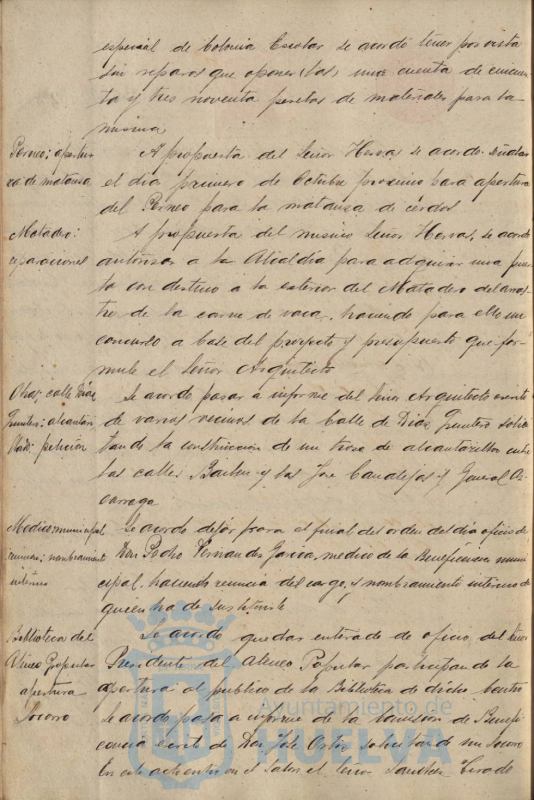 especial de Colonia Escolar se acordó tener por vista
sin reparos que oponerlas, una cuenta de cincuen-
ta y tres noventa pesetas de materiales para la
misma
Porneo; apertu-
ra de matanza
A propuesta del Señor Hervas se acordo señalar
el dia primero de Octubre proximo para apertura
del Porneo para la matanza de cerdos
Matadero:
reparaciones
A propuesta del mismo Señor Hervas, se acordo
autorizar a la Alcaldia para adquirir una puer-
ta con destino a la exterior del Matadero del arras-
tre de la carne de vaca, haciendo para ello un
concurso a base del proyecto y presupuesto que for-
mule el Señor Arquitecto
Obras; calle Diaz
Quintero; alcantari-
llado; petición
Se acordo pasar a informe del Señor Arquitecto escrito
de varios vecinos de la Calle de Diaz Quintero solici-
tando la construccion de un trozo de alcantarillas entre
las calles Bailen y las José Canalejas y General Az-
carraga
Medico municipal
renuncia; nombramiento
interino
Se acordo dejar para el final del orden del dia oficio de
Don Pedro Fernandez Garcia, medico de la Beneficencia muni-
cipal, haciendo renuncia del cargo, y nombramiento interino de
quien ha de sustituirle
Biblioteca del
Ateneo Popular
apertura
Se acordo quedar enterado de oficio del Señor
Presidente del Ateneo Popular participando la
apertura al publico de la Biblioteca de dicho Centro
Socorro
Se acordo pasar a informe de la Comision de Benefi-
cencia escrito de Don José Ortiz solicitando un socorro
En este acto entro en el Salon el Señor Sanchez
Ayuntamiento de
HUELVA